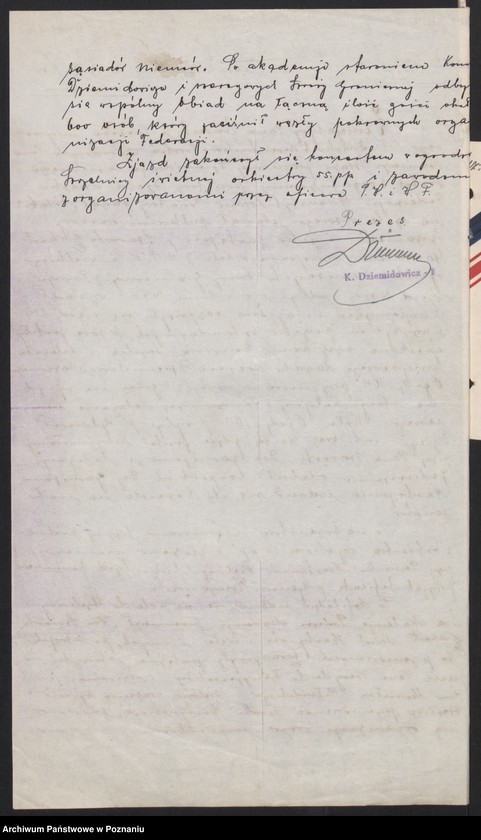 sąsiadów Niemców. Po akademji staraniem Kom
Dziemidowicza i Straży Granicznej odby
się wspólny obiad na łączną ilość gości około
600 osób, który zacieśnił węzły pokrewnych orga
nizacji Federacji.
Zjazd zakończył się koncertem w ogrodzie
Strzelnicy świetnej orkiestry 55. pp. i zawodami
zorganizowanemi przez oficera P.W. i W.F.
Prezes
K. Dziemidowicz
Archiwum Państwowe w Poznaniu